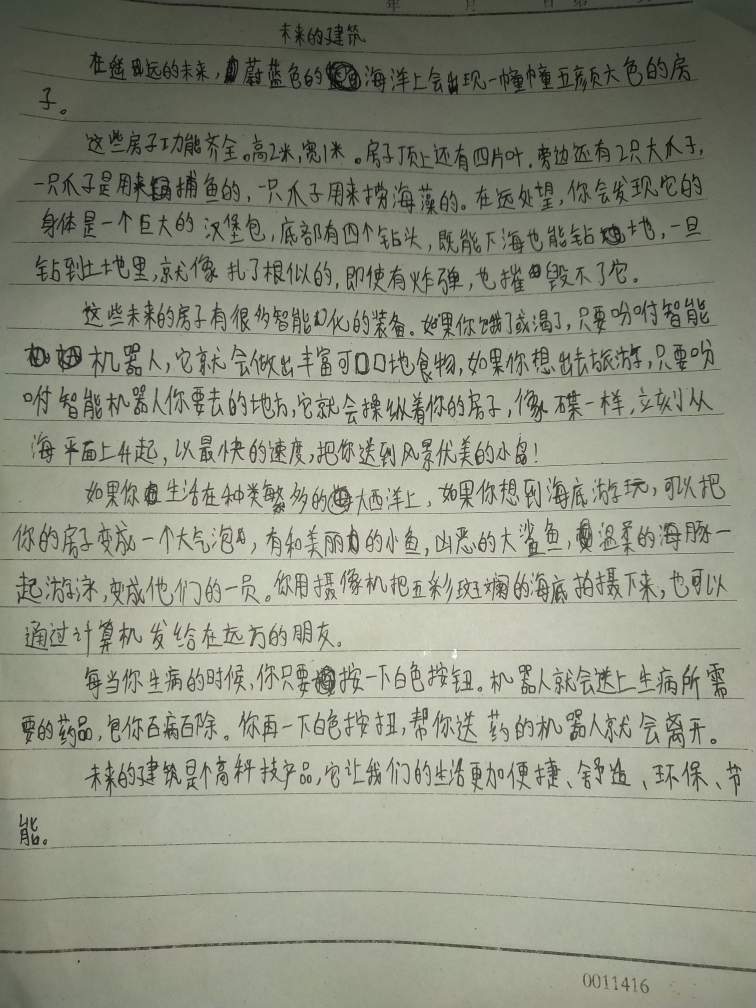 年 月
未来的建筑
在遥远的未来，蔚蓝色的海洋上会出现一幢幢五颜六色的房
子。
这些房子功能齐全。高2米，宽1米。房子顶上还有四片叶，旁边还有2只大爪子，
一只爪子是用来捕鱼的，一只爪子用来捞海藻的。在远处望，你会发现它的
身体是一个巨大的汉堡包，底部有四个钻头，既能下海也能钻地，一旦
钻到土地里，就像扎了根似的，即使有炸弹，也摧毁不了它。
这些未来的房子有很多智能化的装备。如果你饿了或渴了，只要吩咐智能
机器人，它就会做出丰富可口地食物，如果你想出去旅游，只要吩
咐智能机器人你要去的地点，它就会操纵着你的房子，像碟一样，立刻从
海平面上升起，以最快的速度，把你送到风景优美的小岛！
如果你生活在种类繁多的大西洋上，如果你想到海底游玩，可以把
你的房子变成一个大气泡，有和美丽的小鱼，凶恶的大鲨鱼，温柔的海豚一
起游泳，变成他们的一员。你用摄像机把五彩斑斓的海底拍摄下来，也可以
通过计算机发给在远方的朋友。
每当你生病的时候，你只要按一下白色按钮。机器人就会送上生病所需
要的药品，包你百病百除。你再一下白色按扭，帮你送药的机器人就会离开。
未来的建筑是个高科技产品，它让我们的生活更加便捷、舒适、环保、节
能。
0011416